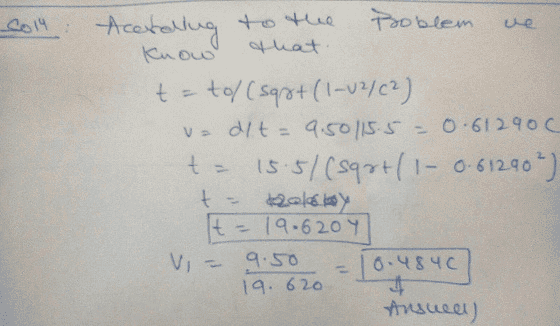 Soln : According to the Problem we
know that.
t = to/(sqrt(1-v2/c2)
v = d/t = 9.50/15.5 = 0.61290C
t = 15.5/(sqrt(1- 0.61290²)
t =
t = 19.620Y
V₁ = 9.50/19.620 = 0.484C
Answer)